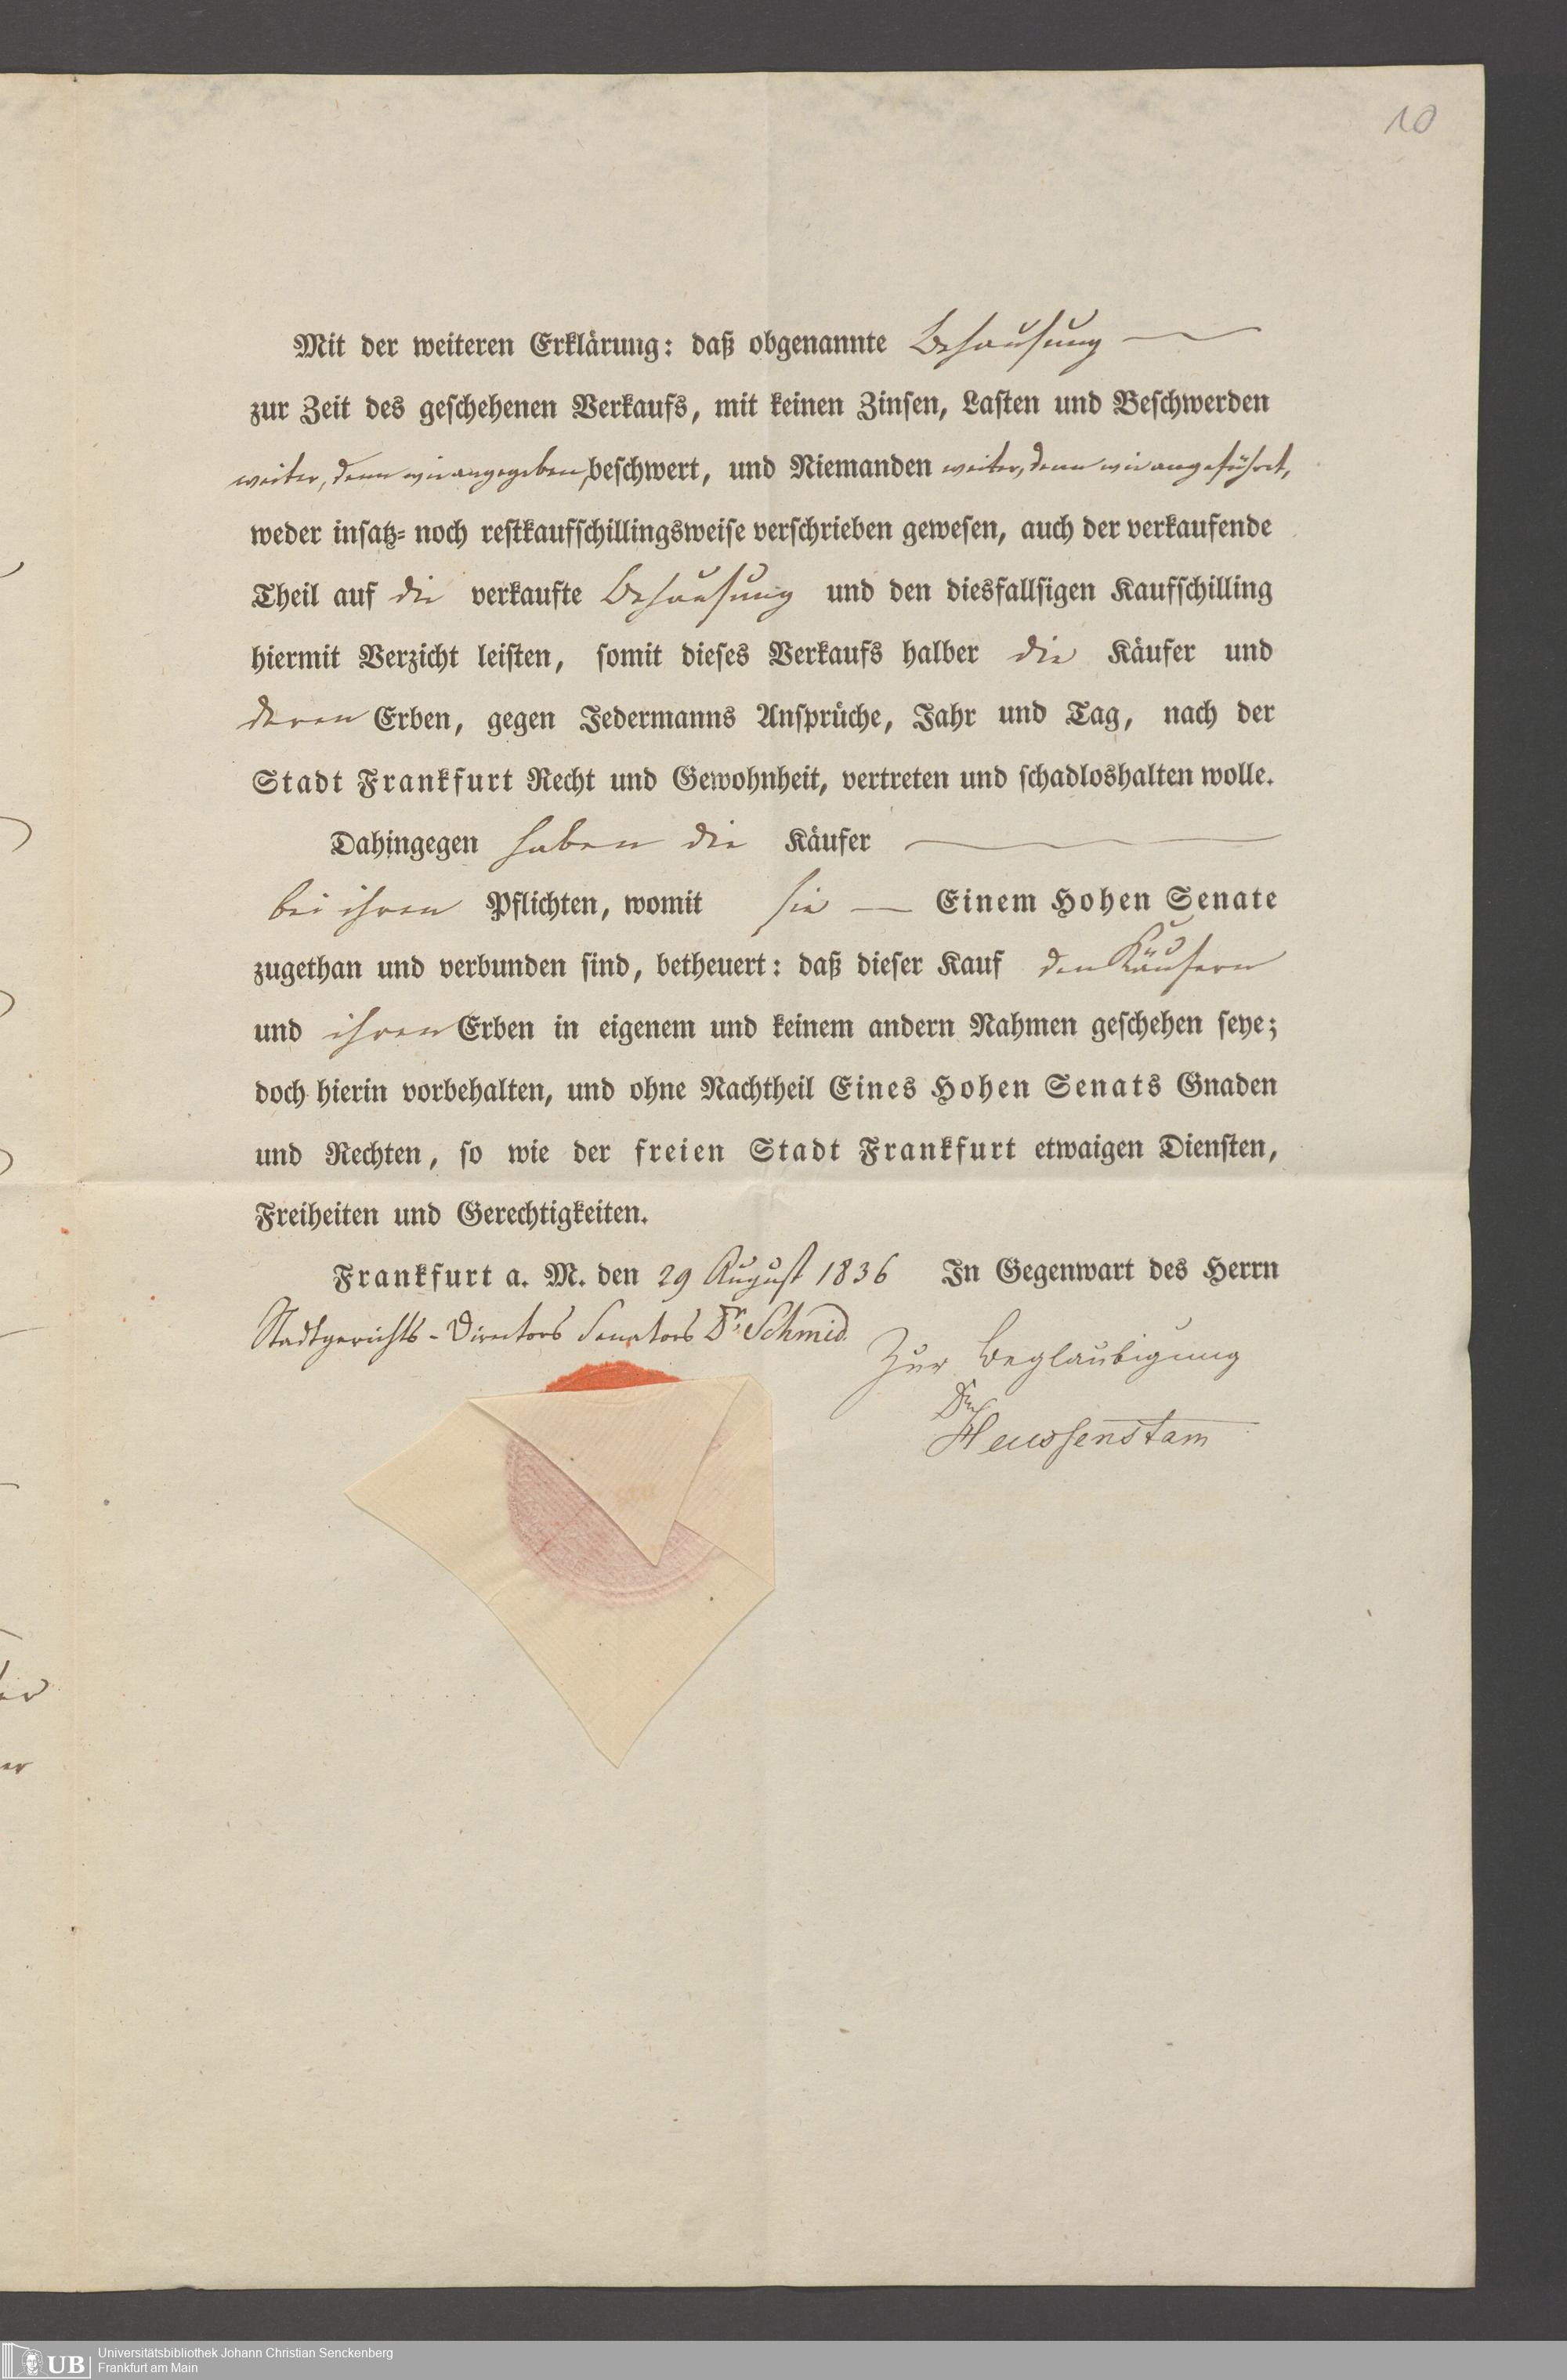 10
Mit der weiteren Erklärung: daß obgenannte Behausung —
zur Zeit des geschehenen Verkaufs, mit keinen Zinsen, Lasten und Beschwerden
weiter, denn wie angegeben, beschwert, und Niemanden weiter, denn wie angeführt,
weder insatz- noch restkaufschillingsweise verschrieben gewesen, auch der verkaufende
Theil auf die verkaufte Behausung und den diesfallsigen Kaufschilling
hiermit Verzicht leisten, somit dieses Verkaufs halber die Käufer und
deren Erben, gegen Jedermanns Ansprüche, Jahr und Tag, nach der
Stadt Frankfurt Recht und Gewohnheit, vertreten und schadloshalten wolle.
Dahingegen haben die Käufer —
bei ihren Pflichten, womit sie — Einem Hohen Senate
zugethan und verbunden sind, betheuert: daß dieser Kauf den Käufern
und ihren Erben in eigenem und keinem andern Nahmen geschehen seye;
doch hierin vorbehalten, und ohne Nachtheil Eines Hohen Senats Gnaden
und Rechten, so wie der freien Stadt Frankfurt etwaigen Diensten,
Freiheiten und Gerechtigkeiten.
Frankfurt a. M. den 29 August 1836 In Gegenwart des Herrn
Stadtgerichts-Directors Senators Dr. Schmid.
Zur Beglaubigung
Dr
Heussenstam
er
er
UB
Universitätsbibliothek Johann Christian Senckenberg
Frankfurt am Main